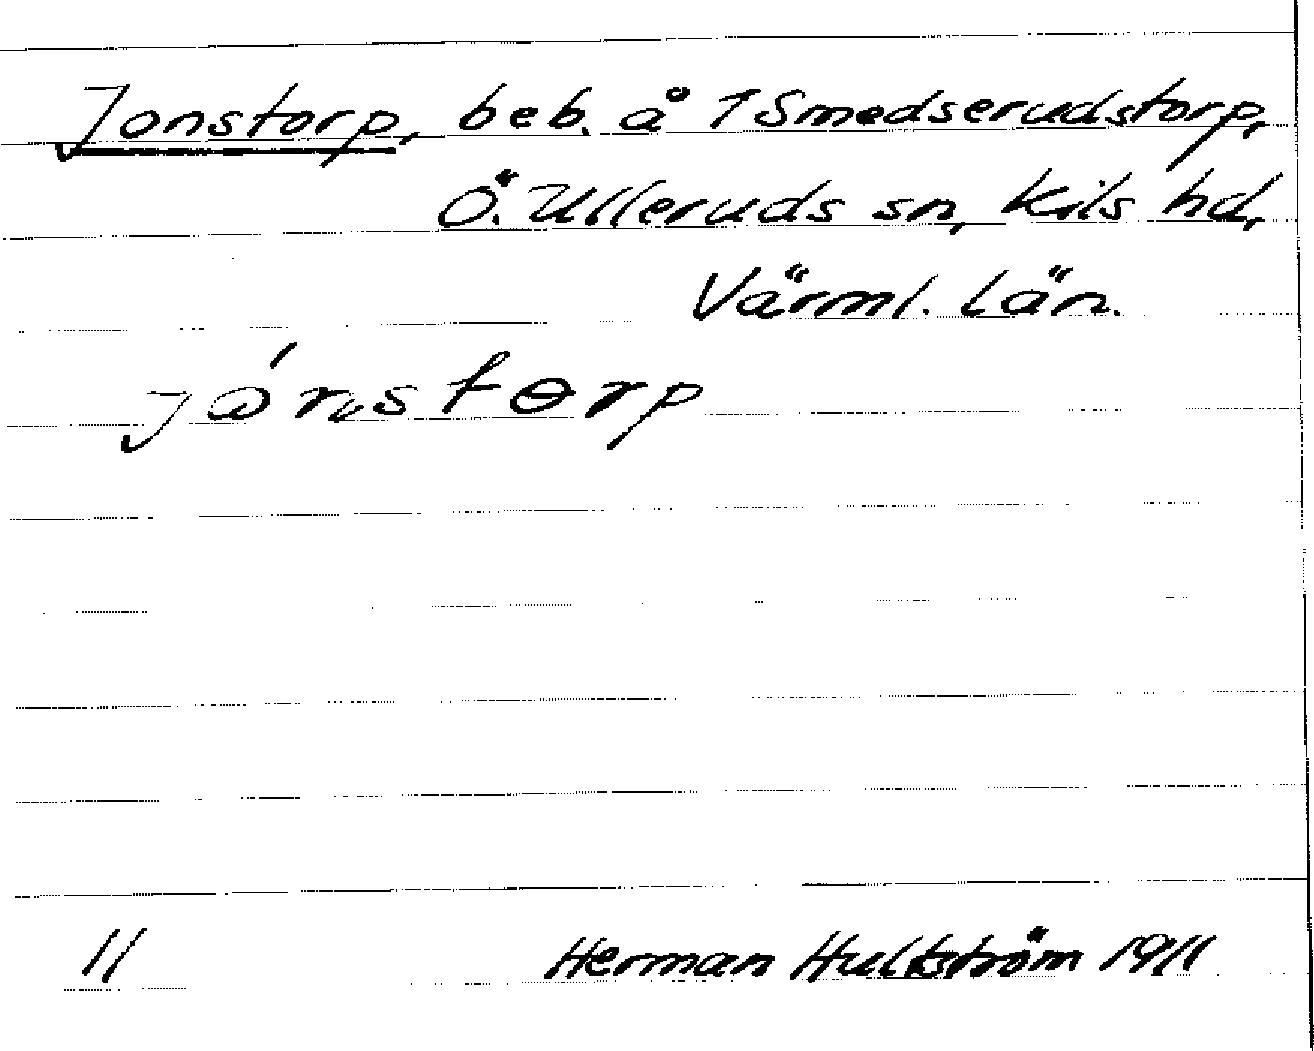 Jonstorp, beb. å 1 Smedserudstorp,
Ö. Ulleruds sn, Kils hd,
Värml. län.
11 Herman Hultström 1911